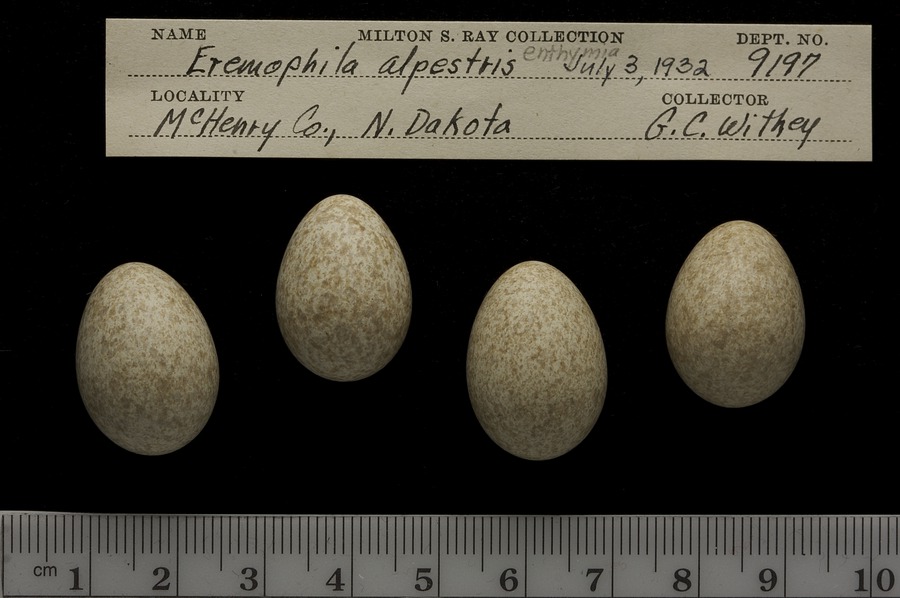 NAME MILTON S. RAY COLLECTION DEPT. NO.
Eremophila alpestris enthymia July 3, 1932 9197
LOCALITY COLLECTOR
McHenry Co., N. Dakota G. C. Withey
cm 1 2 3 4 5 6 7 8 9 10